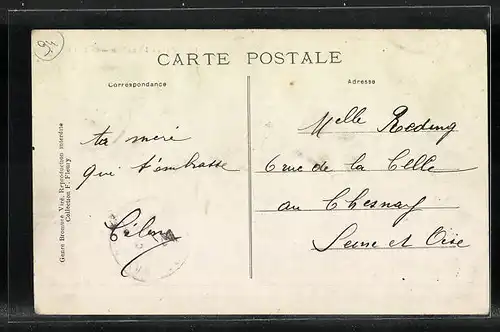 CARTE POSTALE
Correspondance
Adresse
ta meré
qui t'embrasse
Melle Reding
6 rue de la Celle
au Chesnay
Seine et Oise
Genre Bromure Véré. Reproduction interdite
Collection F. Fleury